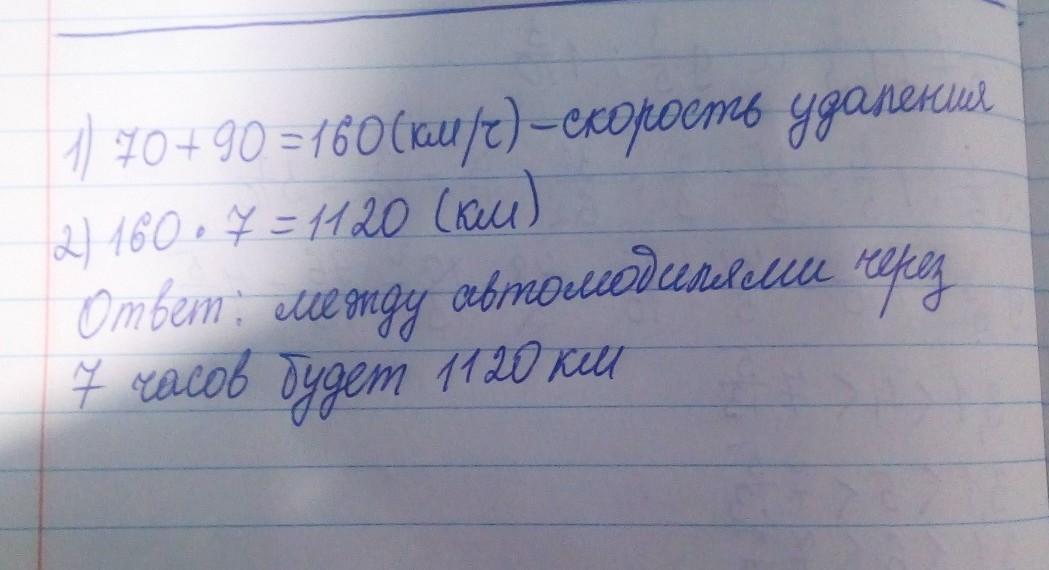 1) 70+90=160(км/ч)-скорость удаления
2) 160·7=1120 (км)
Ответ: между автомобилями через
7 часов будет 1120 км